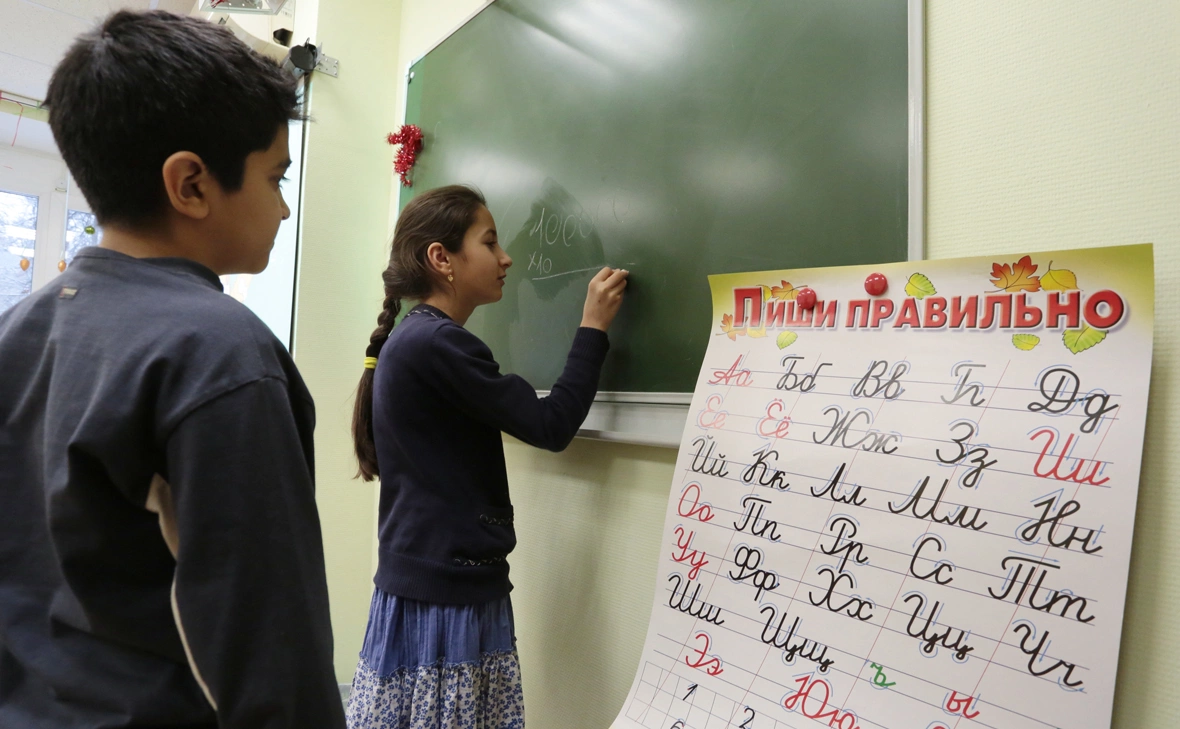 1000
×10
ПИШИ ПРАВИЛЬНО
Аа Бб Вв Гг Дд
Ее Ёё Жж Зз Ии
Йй Кк Лл Мм Нн
Оо Пп Рр Сс Тт
Уу Фф Хх Цц Чч
Шш Щщ ъ ы
Ээ Юю
1 2